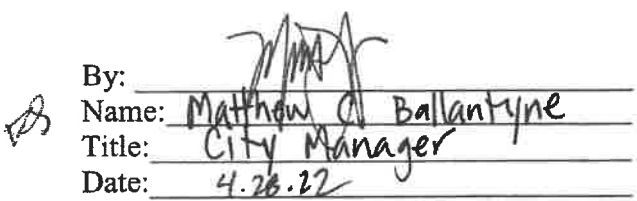 By:
Name: Matthew C Ballantyne
Title: City Manager
Date: 4.28.22